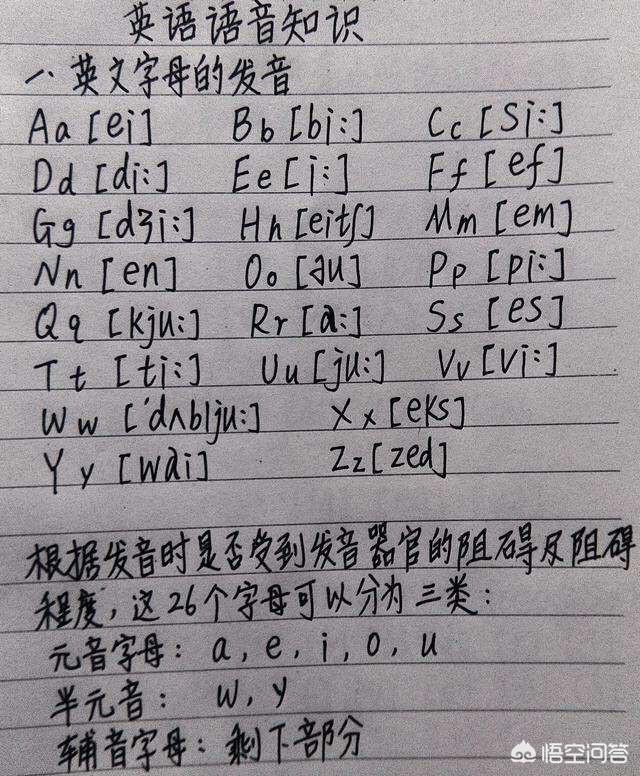 英语语音知识
一、英文字母的发音
Aa [ei] Bb [bi:] Cc [Si:]
Dd [di:] Ee [i:] Ff [ef]
Gg [dʒi:] Hh [eitʃ] Mm [em]
Nn [en] Oo [əu] Pp [pi:]
Qq [kju:] Rr [a:] Ss [es]
Tt [ti:] Uu [ju:] Vv [vi:]
Ww ['dʌblju:] Xx [eks]
Yy [wai] Zz [zed]
根据发音时是否受到发音器官的阻碍及阻碍
程度，这26个字母可以分为三类：
元音字母：a, e, i, o, u
半元音：w, y
辅音字母：剩下部分
悟空问答